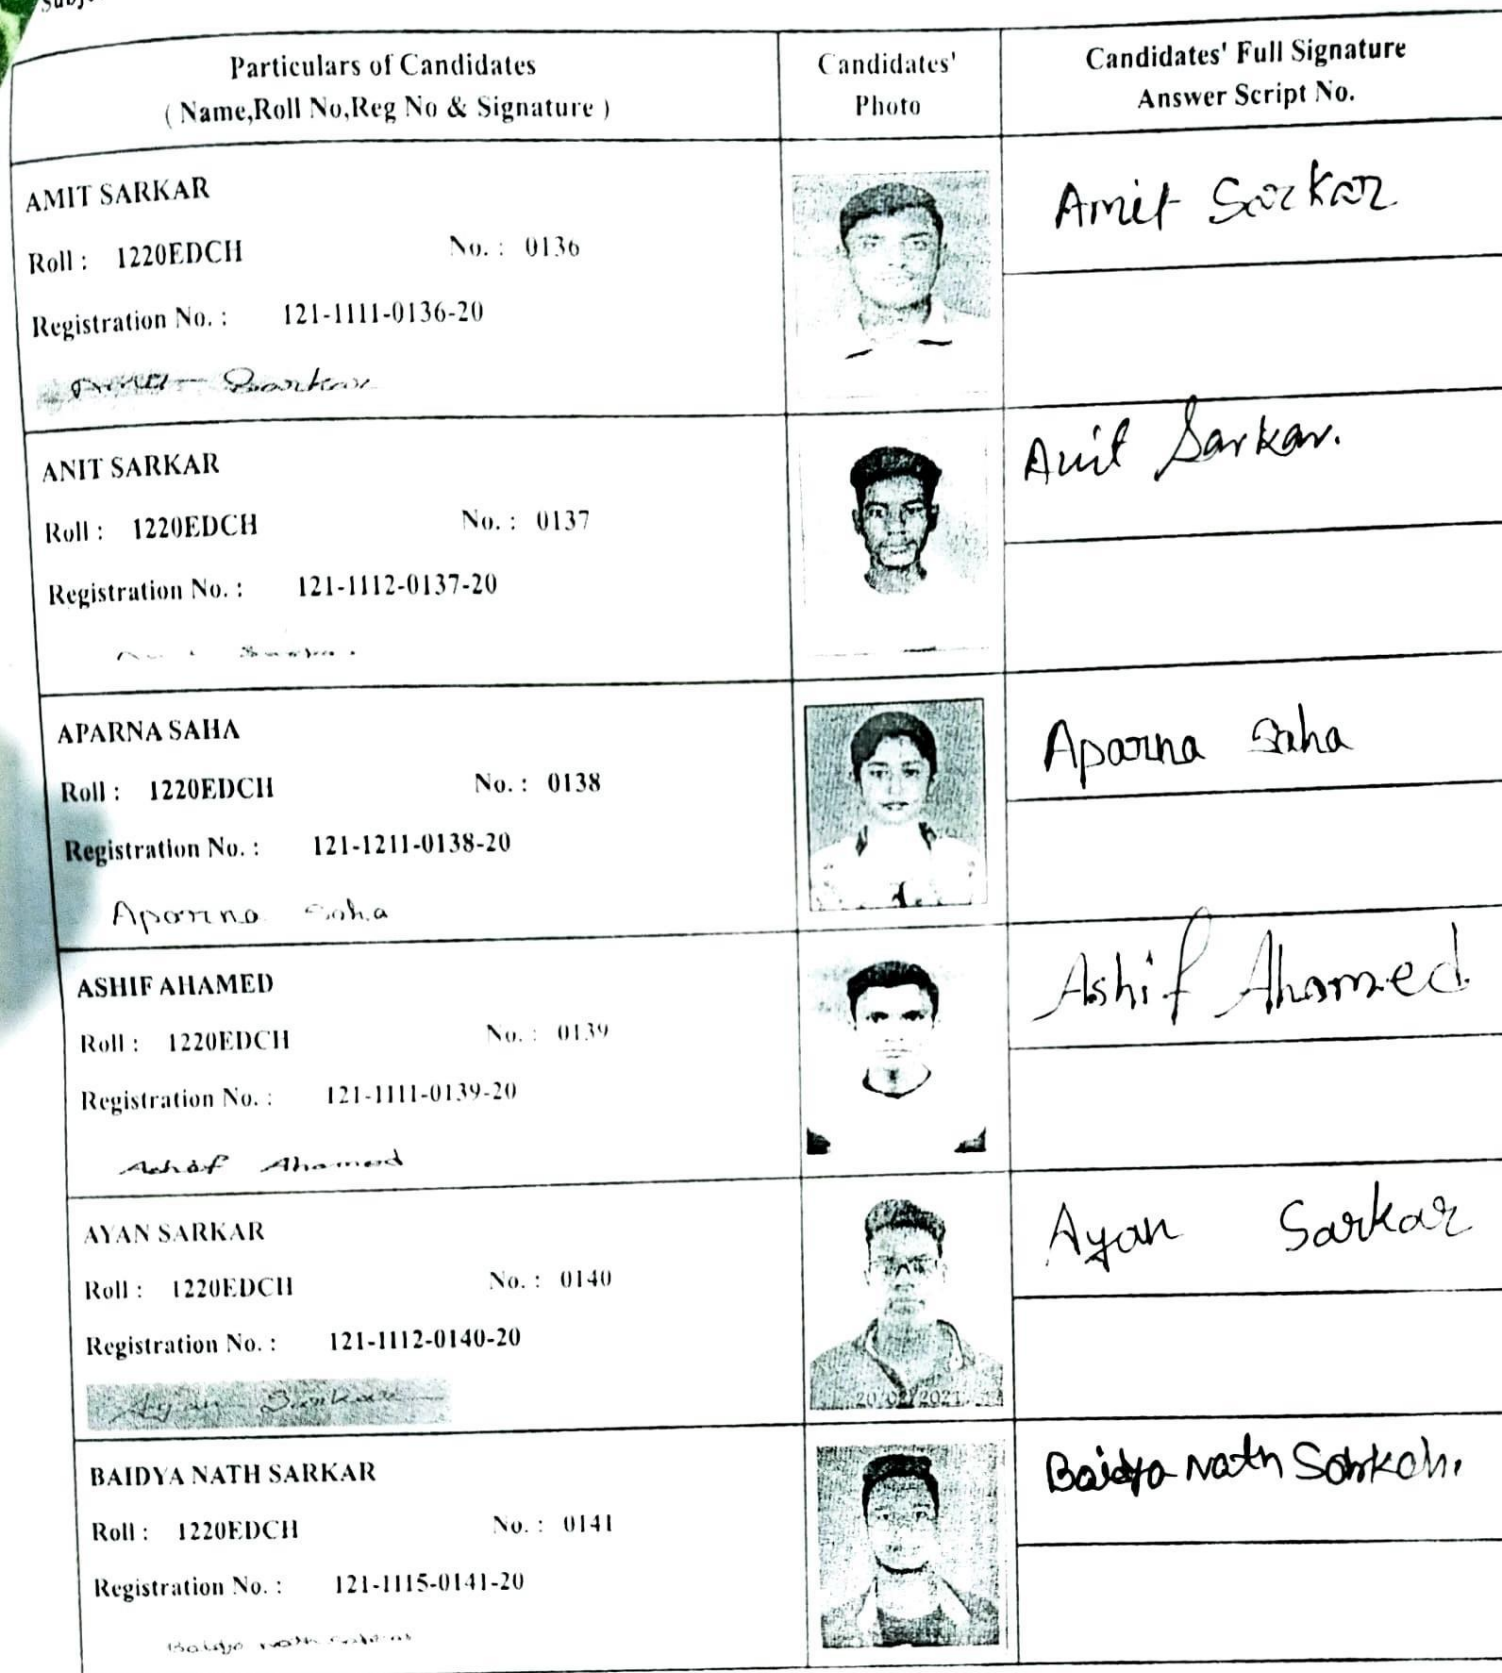 Particulars of Candidates
( Name,Roll No,Reg No & Signature )
Candidates'
Photo
Candidates' Full Signature
Answer Script No.
AMIT SARKAR
Roll : 1220EDCH No. : 0136
Registration No. : 121-1111-0136-20
Sarkar
Amit Sarkar
ANIT SARKAR
Roll : 1220EDCH No. : 0137
Registration No. : 121-1112-0137-20
Anit Sarkar.
APARNA SAHA
Roll : 1220EDCH No. : 0138
Registration No. : 121-1211-0138-20
Aparna Saha
Aparna Saha
ASHIF AHAMED
Roll : 1220EDCH No. : 0139
Registration No. : 121-1111-0139-20
Ashif Ahamed
Ashif Ahamed
AYAN SARKAR
Roll : 1220EDCH No. : 0140
Registration No. : 121-1112-0140-20
Ayan Sarkar
20/02/2021
Ayan Sarkar
BAIDYA NATH SARKAR
Roll : 1220EDCH No. : 0141
Registration No. : 121-1115-0141-20
Baidya Nath Sarkar
Baidya Nath Sarkar.